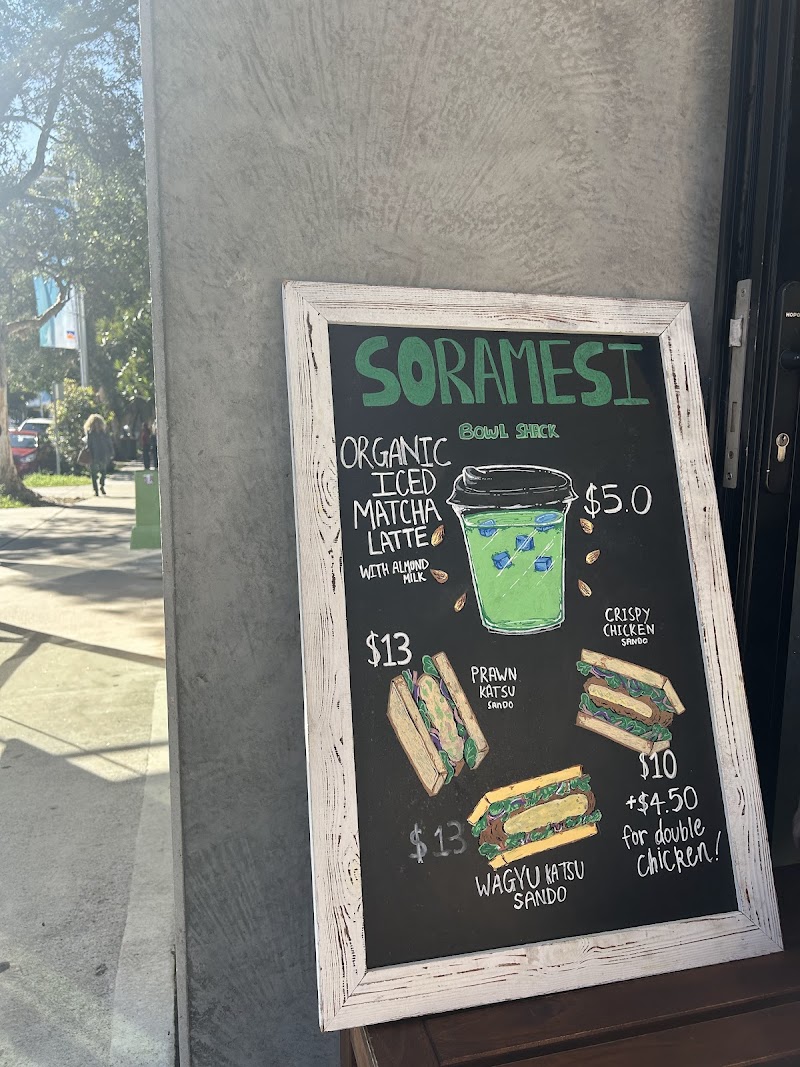 SORAMESI
BOWL SHACK
ORGANIC
ICED
MATCHA
LATTE
WITH ALMOND
MILK
$5.0
$13
PRAWN
KATSU
SANDO
CRISPY
CHICKEN
SANDO
$10
+$4.50
for double
chicken!
$13
WAGYU KATSU
SANDO